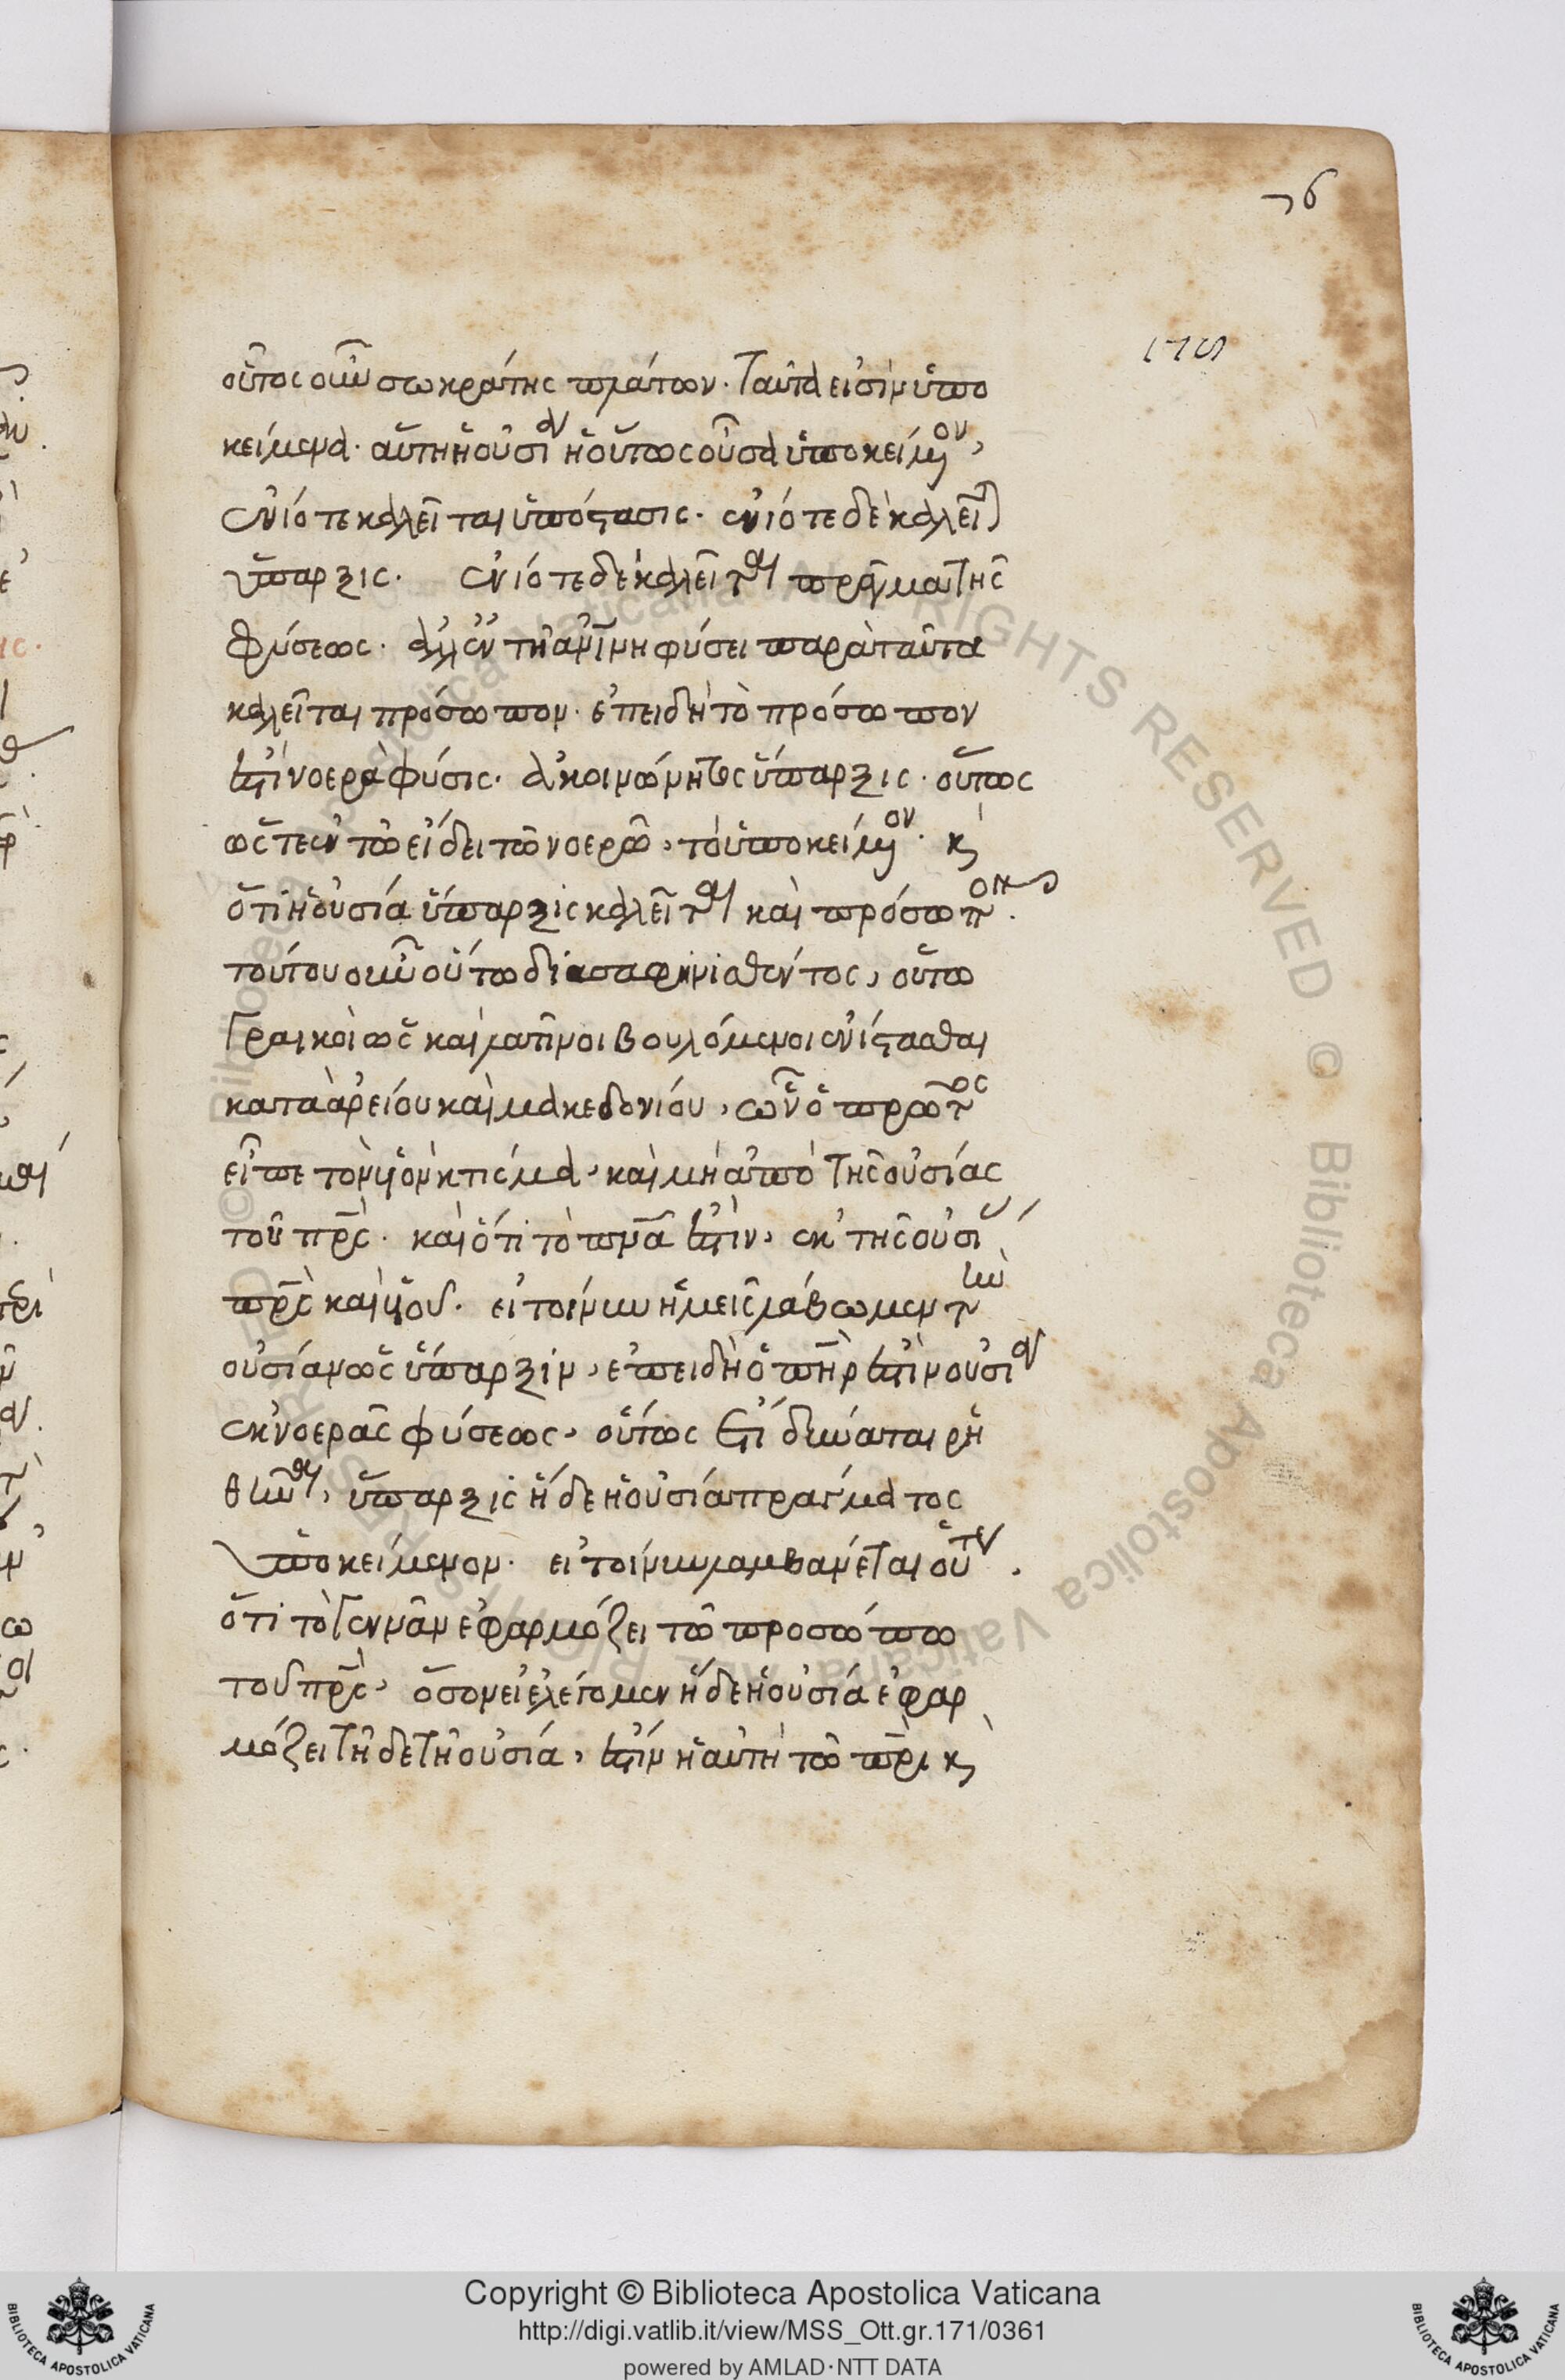 76
176
οὗτος οὖν σωκράτης πλάτων. Ταῦτα εἰσὶν ὑπο
κείμενα. αὕτη ἡ οὐσία ἡ οὕτως οὖσα ὑποκείμενον,
ἐνίοτε καλεῖται ὑπόστασις. ἐνίοτε δὲ καλεῖται
ὕπαρξις. ἐνίοτε δὲ καλεῖται πρᾶγμα τῆς
φύσεως. ἀλλ' ἐν τῇ φύσει παρὰ ταῦτα
καλεῖται πρόσωπον. ἐπειδὴ τὸ πρόσωπον
ἐστὶ νοερὰ φύσις. ἀκοινώνητος ὕπαρξις. οὕτως
ὥστε ἐν τῷ εἴδει τῷ νοερῷ, τὸ ὑποκείμενον. καὶ
ὅτι ἡ οὐσία ὕπαρξις καλεῖται καὶ πρόσωπον.
τούτου οὖν οὕτω διασαφηνισθέντος, οὕτω
Γραικοὶ ὡς καὶ λατῖνοι βουλόμενοι ἐνίστασθαι
κατὰ ἀρείου καὶ μακεδονίου, ὧν ὁ πρῶτος
εἶπε τὸν υἱὸν κτίσμα, καὶ μὴ ἀπὸ τῆς οὐσίας
τοῦ πρς. καὶ ὅτι τὸ πνα ἐστὶν, ἐκ τῆς οὐσίας
πρς καὶ υἱοῦ. εἰ τοίνυν ἡμεῖς λάβωμεν τὴν
οὐσίαν ὡς ὕπαρξιν, ἐπειδὴ ὁ πηρ ἐστὶν οὐσία
ἐκ νοερᾶς φύσεως, οὕτως ἔτι δύναται ῥη
θῆναι, ὕπαρξις ἥδε ἡ οὐσία πράγματος
ὑποκείμενον. εἰ τοίνυν λαμβάνεται οὕτως.
ὅτι τὸ γεννᾶν ἐφαρμόζει τῷ προσώπῳ
τοῦ πρς, ὅσον εἰ ἐλέγομεν ἥδε ἡ οὐσία ἐφαρ
μόζει τῇδε τῇ οὐσία, ἐστὶν ἡ αὐτὴ τῷ πρι καὶ
Copyright © Biblioteca Apostolica Vaticana
http://digi.vatlib.it/view/MSS_Ott.gr.171/0361
powered by AMLAD·NTT DATA